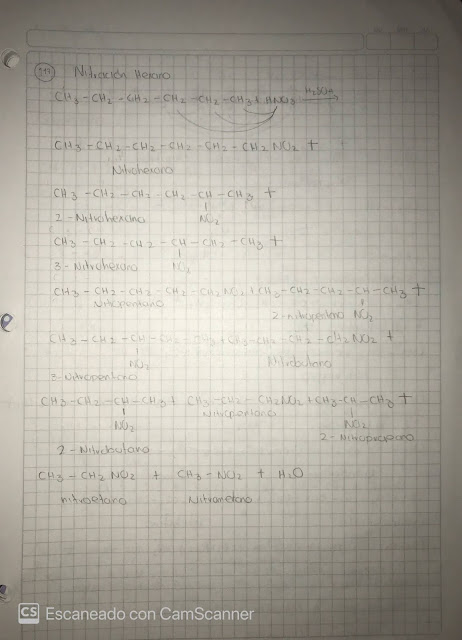 Nitración Hexano
CH3 - CH2 - CH2 - CH2 - CH2 - CH3 + HNO3 H2SO4
CH3 - CH2 - CH2 - CH2 - CH2 - CH2 NO2 +
Nitrohexano
CH3 - CH2 - CH2 - CH2 - CH - CH3 +
2 - Nitrohexano NO2
CH3 - CH2 - CH2 - CH - CH2 - CH3 +
3 - Nitrohexano NO2
CH3 - CH2 - CH2 - CH2 - CH2 NO2 + CH3 - CH2 - CH2 - CH - CH3 +
Nitropentano 2 - nitropentano NO2
CH3 - CH2 - CH - CH2 - CH3 + CH3 - CH2 - CH2 - CH2 NO2 +
NO2 Nitrobutano
3 - nitropentano
CH3 - CH2 - CH - CH3 + CH3 - CH2 - CH2 NO2 + CH3 - CH - CH3 +
NO2 NO2
2 - Nitrobutano 2 - Nitropropano
CH3 - CH2 NO2 + CH3 - NO2 + H2O
nitroetano Nitrometano
CS Escaneado con CamScanner